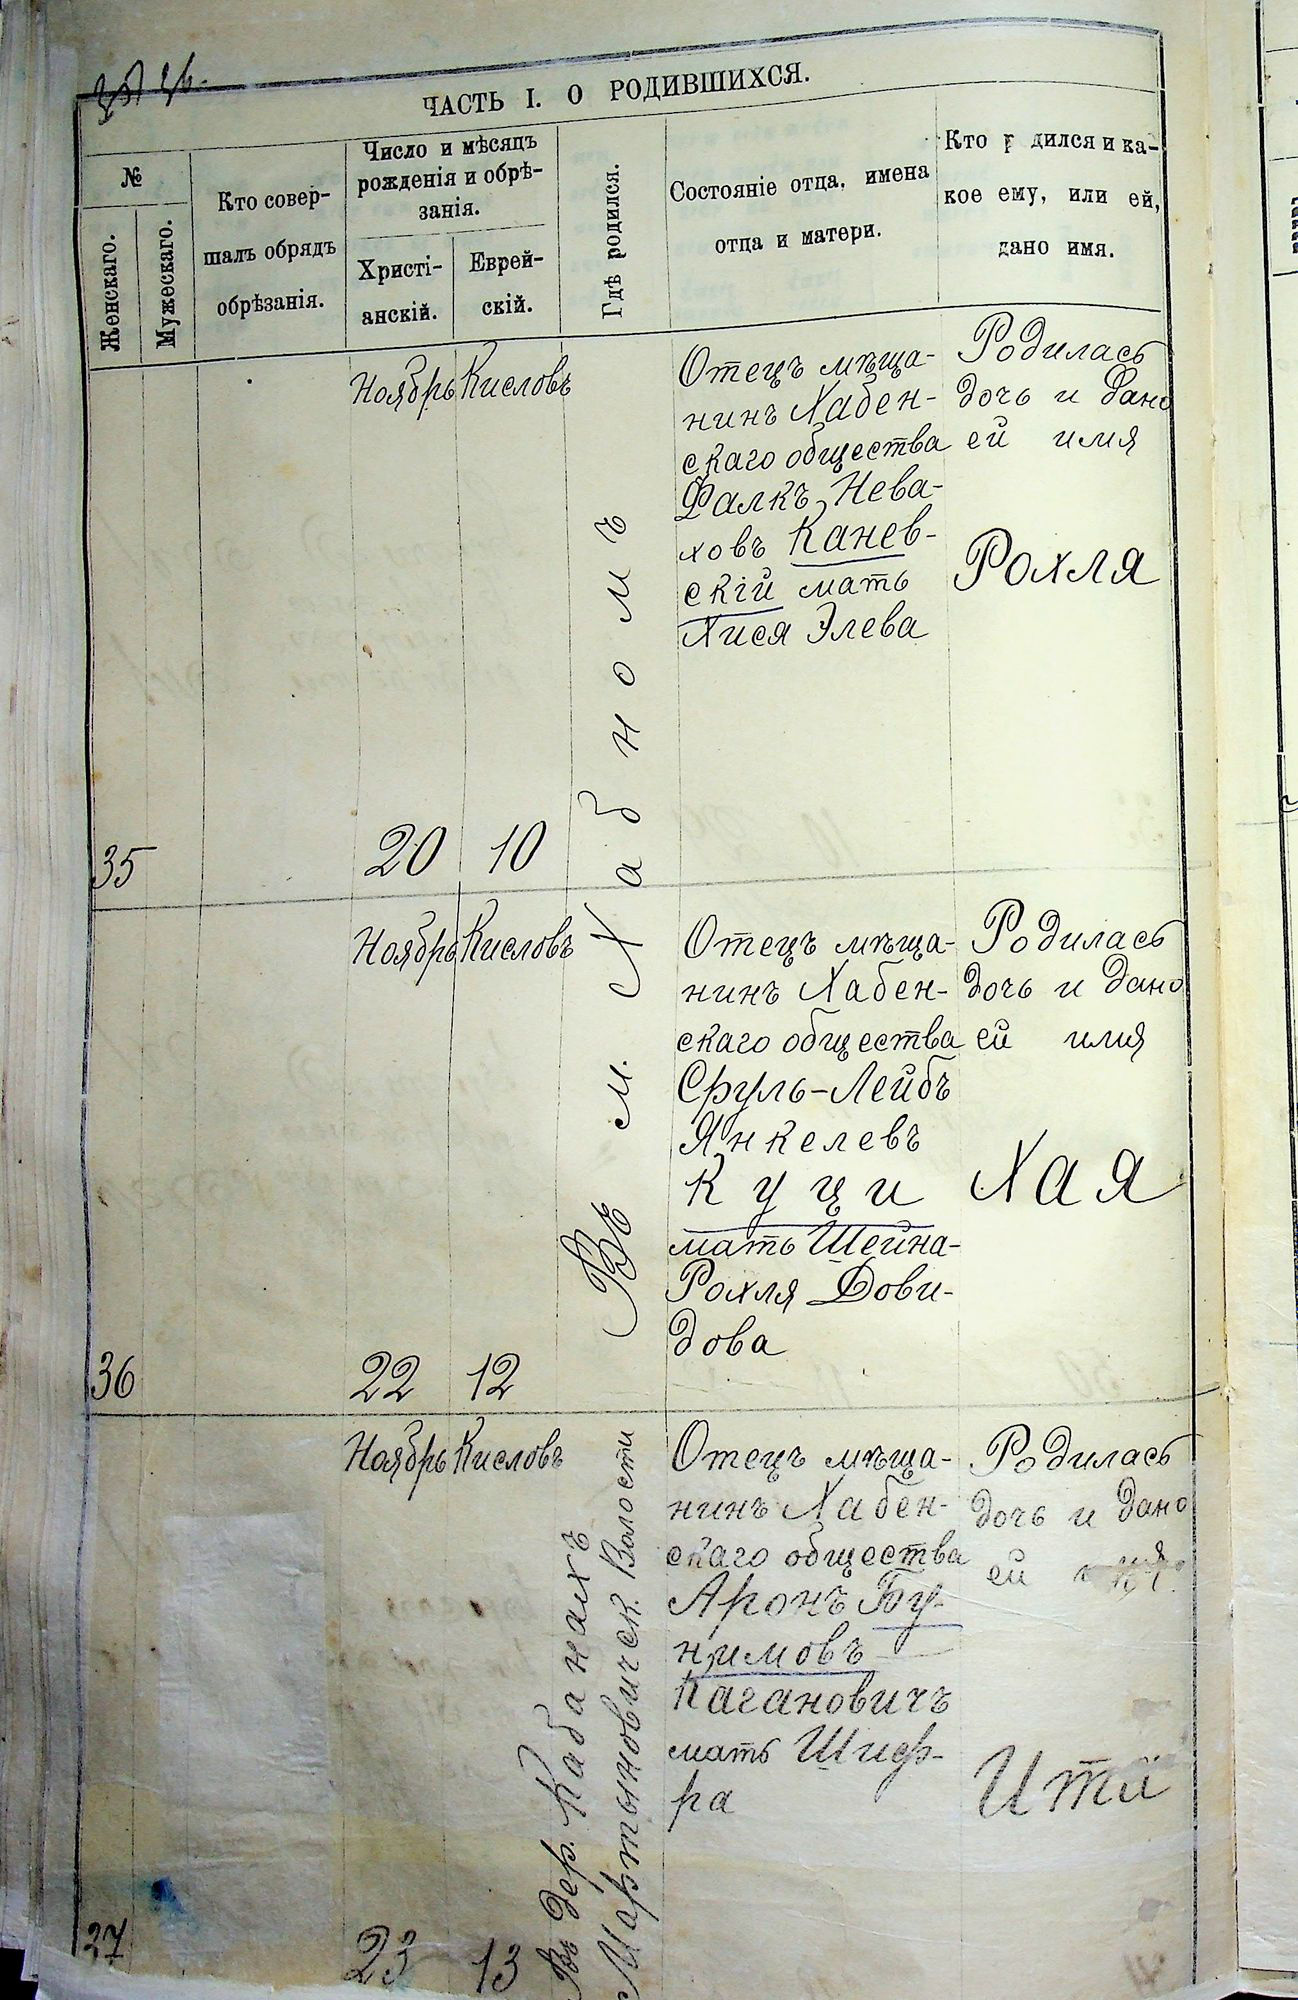 ЧАСТЬ I. О РОДИВШИХСЯ.
№
Женскаго.
Мужескаго.
Кто совер-
шалъ обрядъ
обрѣзанія.
Число и мѣсяцъ
рожденія и обрѣ-
занія.
Христі-
анскій.
Еврей-
скій.
Гдѣ родился.
Состояніе отца, имена
отца и матери.
Кто р дился и ка-
кое ему, или ей,
дано имя.
35
Ноябрь
20
Кисловъ
10
Въ м. Хабномъ
Отецъ мѣща-
нинъ Хабен-
скаго общества
Фалкъ Нева-
ховъ Канев-
скій мать
Хися Элева
Родилась
дочь и дано
ей имя
Рохля
36
Ноябрь
22
Кисловъ
12
Отецъ мѣща-
нинъ Хабен-
скаго общества
Сруль-Лейбъ
Янкелевъ
Куци
мать Шейна-
Рохля Дови-
дова
Родилась
дочь и дано
ей имя
Хая
37
Ноябрь
23
Кисловъ
13
Въ дер. Кабанахъ
Мартыновичск. Волости
Отецъ мѣща-
нинъ Хабен-
скаго общества
Аронъ Бу-
нимовъ
Кагановичъ
мать Шиф-
ра
Родилась
дочь и дано
ей
Ити